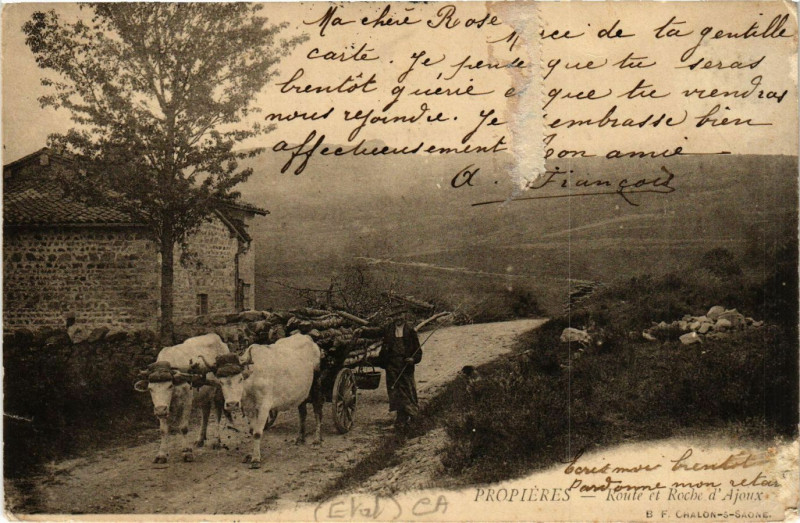 Ma chère Rose
Merci de ta gentille
carte. Je pense que tu seras
bientôt guérie et que tu viendras
nous rejoindre. Je t'embrasse bien
affectueusement ton amie
A. François
Ecris moi bientôt
Pardonne mon retard
PROPIÈRES — Route et Roche d'Ajoux
(Etat) CA
B. F. CHALON-S-SAONE.